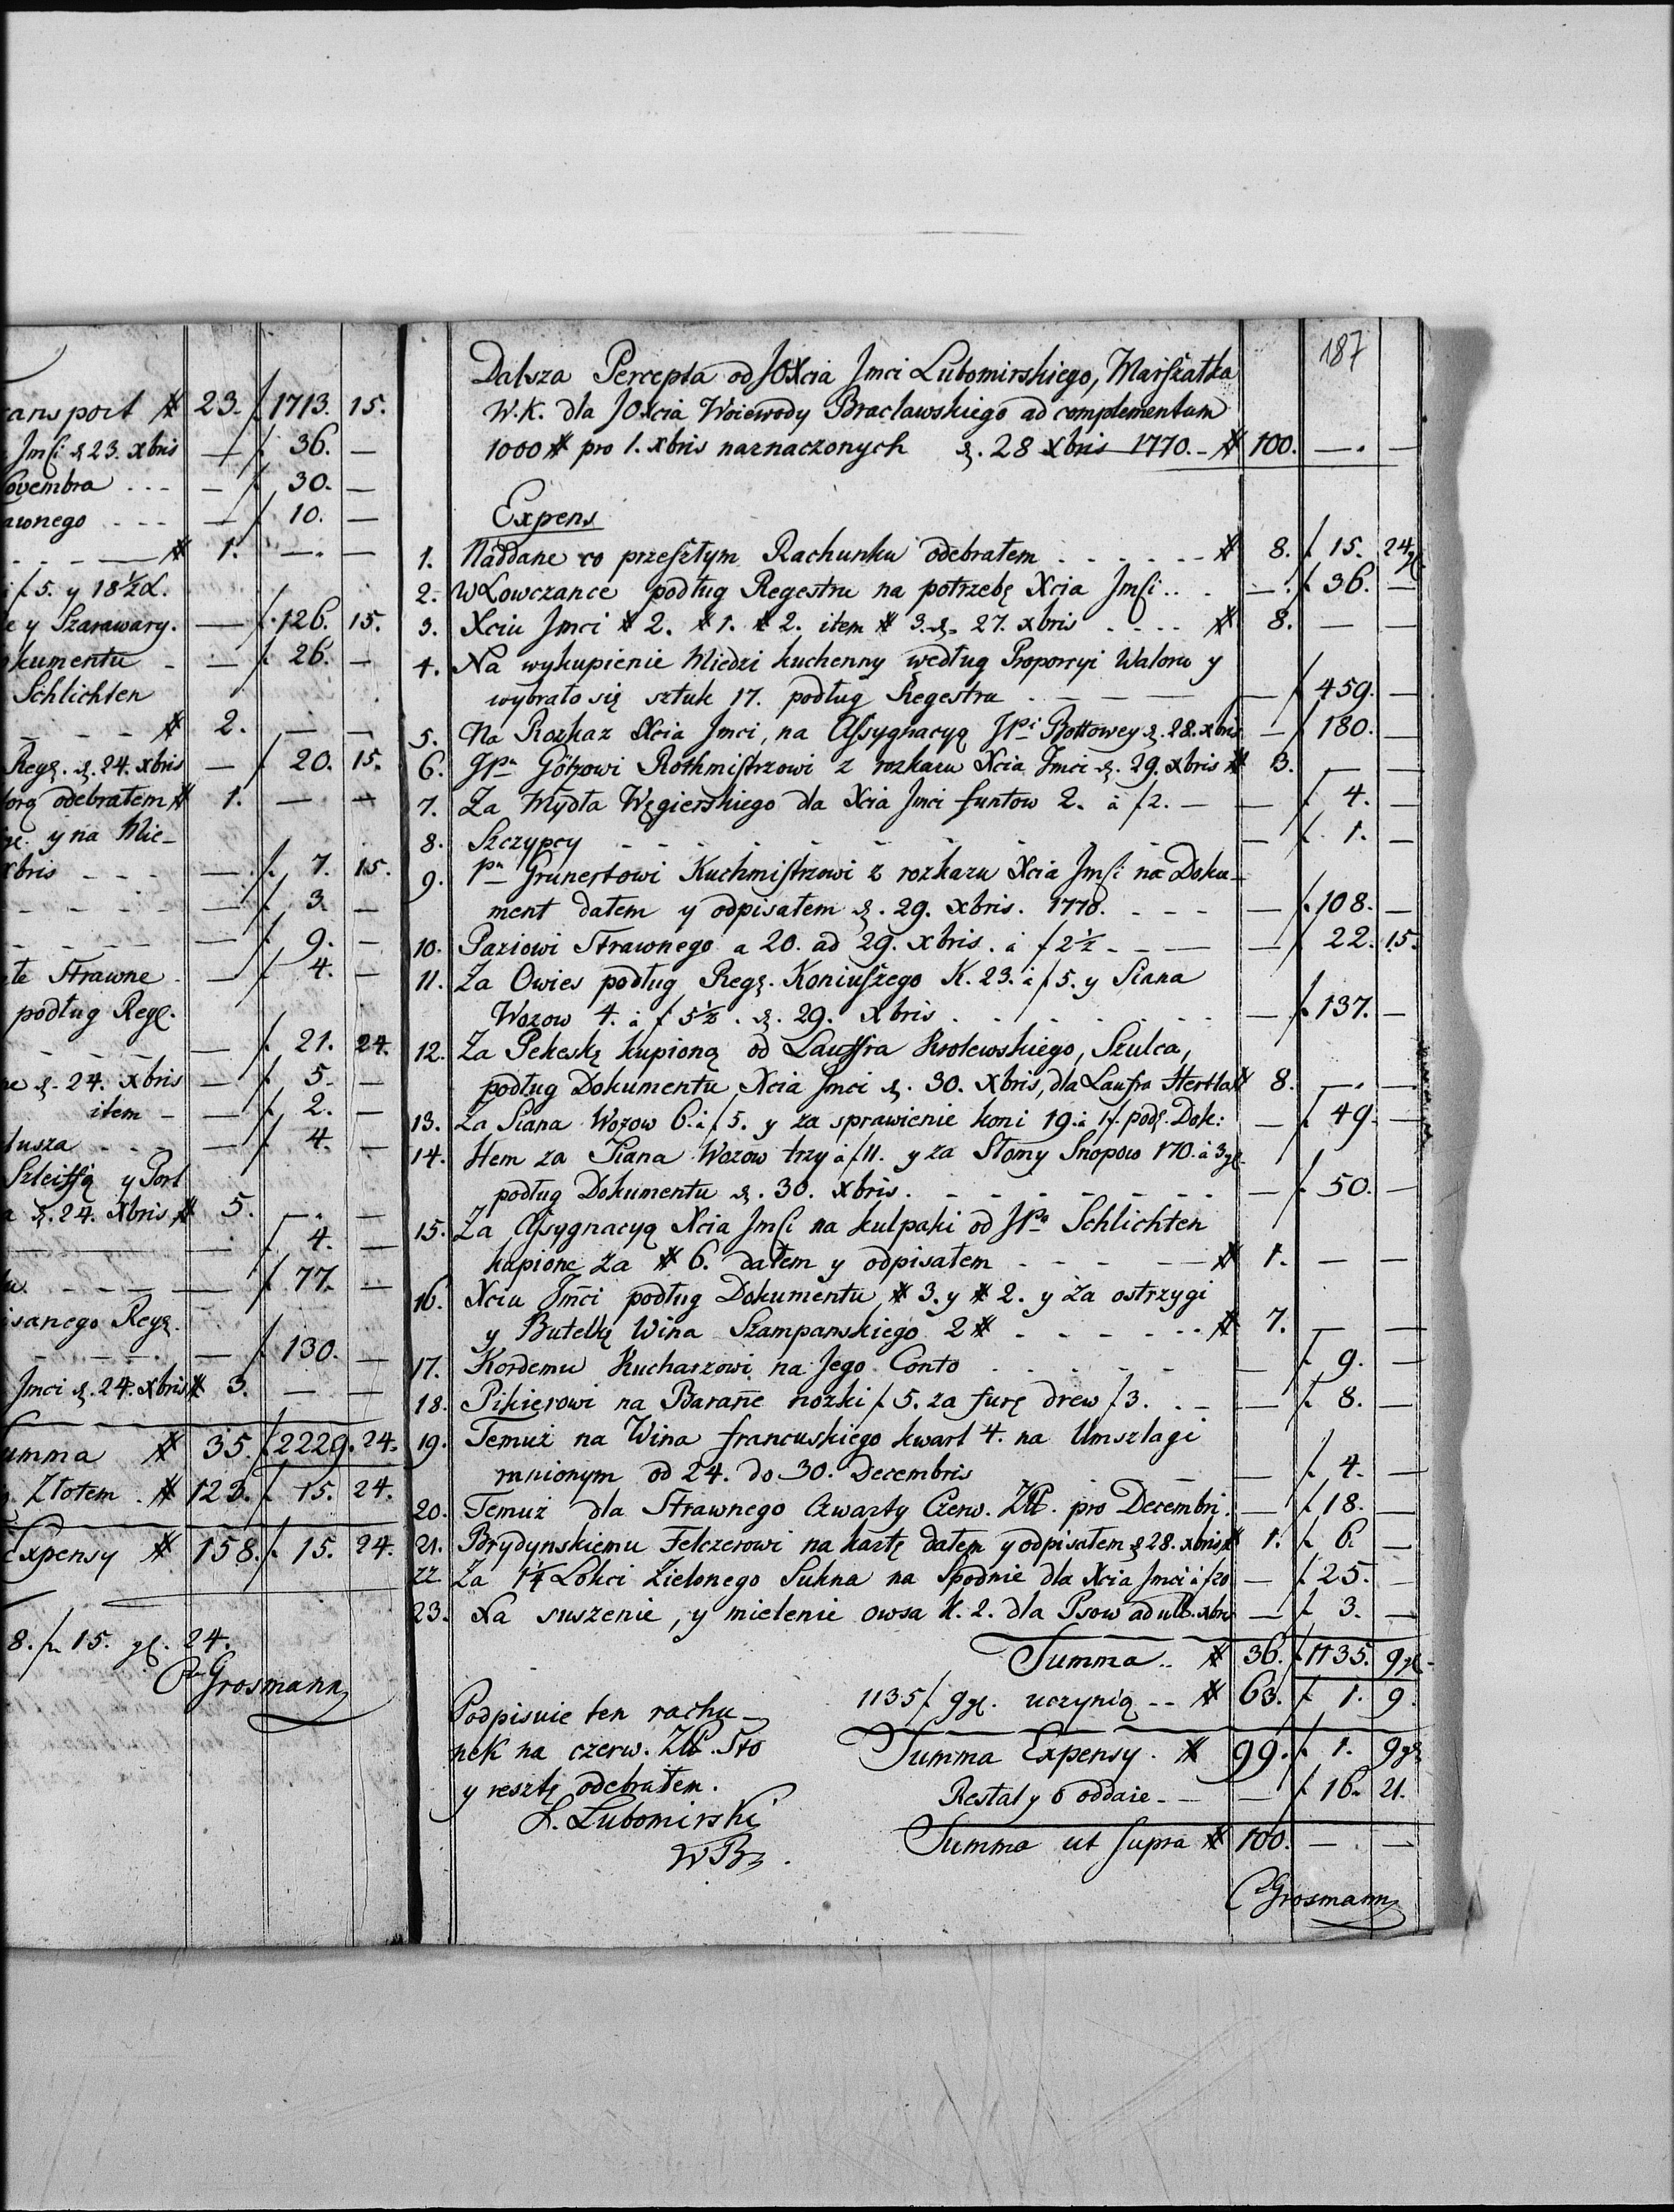 ansport # 23. f 1713. 15.
Jmści d. 23. xbris — f 36. —
ovembra — f 30. —
awnego — f 10. —
# 1. — —
f 5. y 18½ d.
e y Szarawary. — f 126. 15.
kumentu — f 26. —
Schlichten
# 2. — —
Regę. d. 24. xbris — f 20. 15.
torą odebrałem # 1. — —
y na Mie-
xbris — f 7. 15.
— f 3. —
— f 9. —
te Strawne — f 4. —
podług Regę.
— f 21. 24.
d. 24. xbris — f 5. —
item — f 2. —
tusza — f 4. —
Szleiffą y Port
d. 24. Xbris # 5. — —
— f 4. —
— f 77. —
isanego Regę.
— f 130. —
Jmci d. 24. xbris # 3. — —
umma # 35. f 2229. 24.
Złotem # 123. f 15. 24.
Expensy # 158. f 15. 24.
8. f 15. gl. 24.
Grosmann
187
Dalsza Percepta od JOXcia Jmci Lubomirskiego, Marszałka
W. K. dla JOXcia Woiewody Bracławskiego ad complementum
1000 # pro 1. xbris naznaczonych d. 28 Xbris 1770. - # 100. — —
Expens
1. Naddane co przeszłym Rachunku odebrałem # 8. f 15. 24 gl
2. W Łowczance podług Regestru na potrzebę Xcia Jmści — f 36. —
3. Xciu Jmci # 2. # 1. # 2. item # 3. d. 27. xbris # 8. — —
4. Na wykupienie Miedzi kuchenny według Proporcyi Waloru y
wybrało się sztuk 17. podług Regestru — f 459. —
5. Na Rozkaz Xcia Jmci, na Assygnacyą Jpi Bottowey d. 28. xbris — f 180. —
6. Jpn Götzowi Rothmistrzowi z rozkazu Xcia Jmci d. 29. xbris # 3. — —
7. Za Mydła Węgierskiego dla Xcia Jmci funtow 2. à f 2. — f 4. —
8. Szczypcy — f 1. —
9. Pn Grunertowi Kuchmistrzowi z rozkazu Xcia Jmści na Doku-
ment dałem y odpisałem d. 29. xbris. 1770. — f 108. —
10. Paziowi Strawnego a 20. ad 29. xbris. à f 2½ — f 22. 15.
11. Za Owies podług Regę. Koniuszego K. 23. à f 5. y Siana
Wozow 4. à f 5½. d. 29. Xbris — f 137. —
12. Za Pekeskę kupioną od Lauffra Krolewskiego, Szulca,
podług Dokumentu Xcia Jmci d. 30. Xbris, dla Laufra Hertla # 8. — —
13. Za Siana Wozow 6. à f 5. y za sprawienie koni 19. à 1f. podę. Dok: — f 49. —
14. Item za Siana Wozow trzy à f 11. y za Słomy Snopow 170. à 3 gl.
podług Dokumentu d. 30. xbris. — f 50. —
15. Za Assygnacyą Xcia Jmści na kulpaki od Jpn Schlichten
kupione za # 6. dałem y odpisałem # 1. — —
16. Xciu Jmci podług Dokumentu # 3. y # 2. y za ostrzygi
y Butelkę Wina Szampanskiego 2 # # 7. — —
17. Kordemu Kucharzowi na Jego Conto — f 9. —
18. Pikierowi na Baranie nozki f 5. za furę drew f 3. — f 8. —
19. Temuz na Wina francuskiego kwart 4. na Umszlagi
mnionym od 24. do 30. Decembris — f 4. —
20. Temuz dla Strawnego Czwarty Czerw. Zł. pro Decembri. — f 18. —
21. Brydynskiemu Felczerowi na kartę dałem y odpisałem d. 28. xbris # 1. f 6. —
22 Za 1¼ Lokci Zielonego Sukna na Spodnie dla Xcia Jmci à f 20 — f 25. —
23. Za suszenie, y mielenie owsa K. 2. dla Psow ad ult. xbris — f 3. —
Summa # 36. f 1135. 9 gl
1135 f 9 gl. uczynią # 63. f 1. 9.
Summa Expensy # 99. f 1. 9 gl
Restat y oddaie — f 16. 21.
Summa ut supra # 100. — —
Podpisuie ten rachu-
nek na czerw. Zł. Sto
y resztę odebrałem.
S. Lubomirski
WB
Grosmann